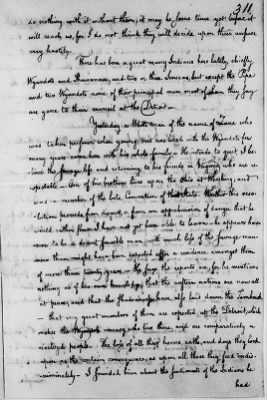 311
do nothing with it without them; it may be some time yet before it
will reach us, for I do not think they will decide upon their answer
very hastily.
There has been a great many Indians here lately, chiefly
Wyandots and Shawanese, and two or three Senecas, but except the Pipe
and two Wyandots none of their principal men most of whom they say
are gone to their council at the Detroit
Yesterday a White man of the name of who
was taken prisoner when young, and has lived with the Wyandots for
many years came here with his whole family he intends to quit I be-
lieve the savage life and returning to his friends in Virginia who are re-
spectable One of his brothers lives upon the Ohio at and
was a member of the late Convention of that State Whether this reso-
lution proceeds from disgust or from an apprehension of danger that he
would rather I have not yet been able to learn he appears how-
ever to be a decent sensible man with much less of the savage man-
ners than might have been expected after a residence amongst them
of more than twenty years He says the reports are, for he mentions
nothing as of his own knowledge, that the western nations are now all
at peace, and that the have also laid down the hatchet
that very great numbers of them are expected at the Detroit, which
makes the Wyandots uneasy, who live there, and are comparatively a
civilized people. The loss of all their horses, cattle, and dogs they look
upon as the certain consequence, as upon all these they feed indis-
criminately I sounded him about the sentiments of the Indians he
had